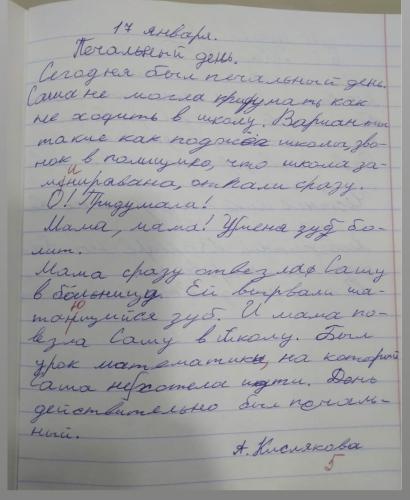 17 января.
Печальный день.
Сегодня был печальный день.
Саша не могла придумать, как
не ходить в школу. Варианты
такие как поджог школа, зво-
нок в полицию, что школа за-
минирована, отпали сразу.
О! Придумала!
Мама, мама! У меня зуб бо-
лит.
Мама сразу отвезла Сашу
в больницу. Ей вырвали ша-
тающийся зуб. И мама по-
везла Сашу в школу. Был
урок математики, на который
Саша не хотела идти. День
действительно был печаль-
ный.
А. Кислякова
5